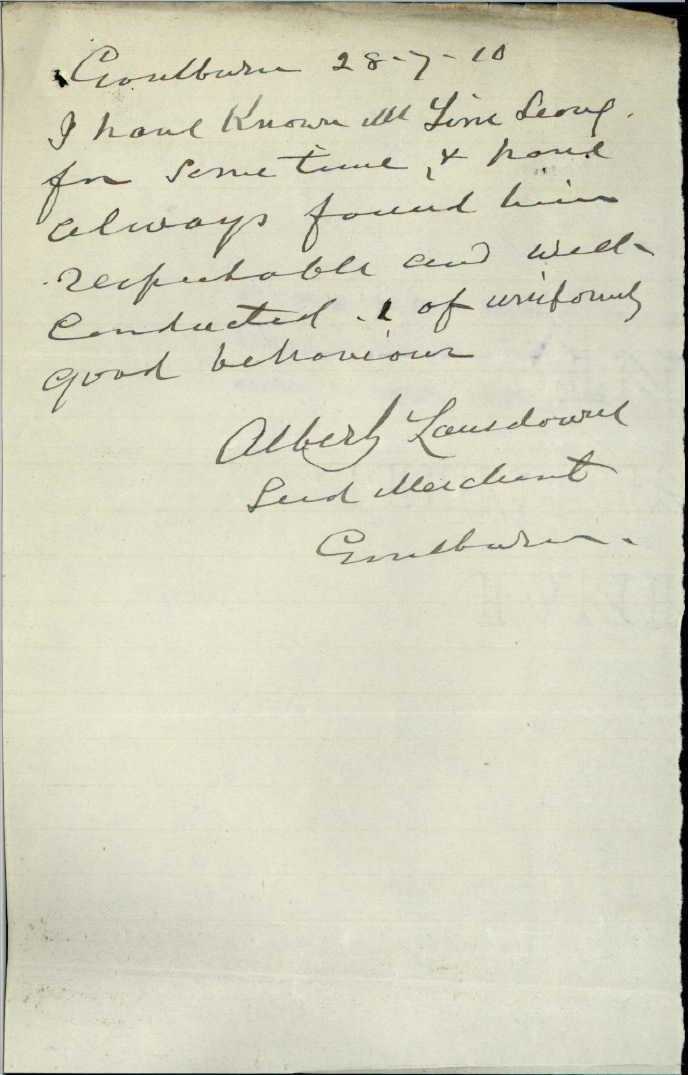 Goulburn 28-7-10
I have Known Mr Yim Leong
for some time, & have
always found him
respectable and well
conducted & of uniformly
good behaviour
Albert Lansdowne
Seed Merchant
Goulburn.